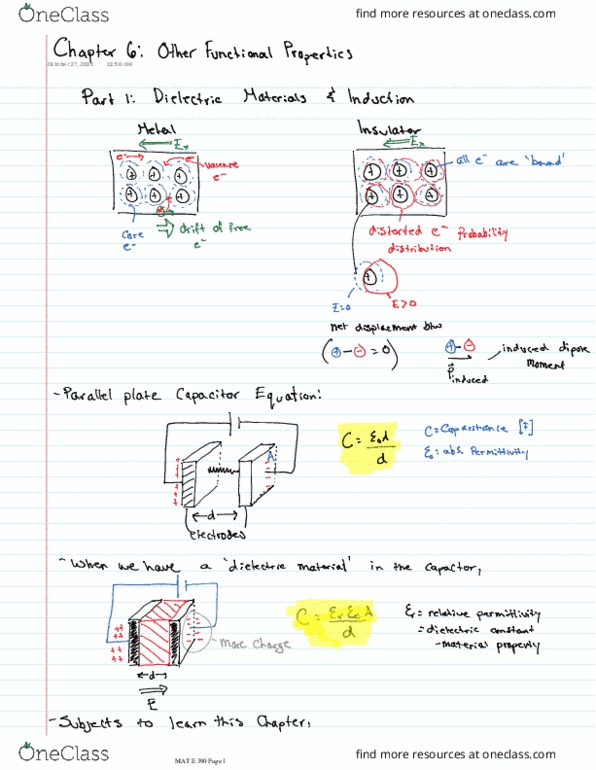 OneClass
find more resources at oneclass.com
Chapter 6: Other Functional Properties
October 27, 2015 11:56 AM
Part 1: Dielectric Materials & Induction
Metal
Insulator
Ex
Ex
e-
valence
e-
all e- are 'bound'
core
e-
drift of free
e-
distorted e- probability
distribution
E=0
E>0
net displacement btw
(+ - - = 0)
+ - -
P induced
induced dipole
moment
- Parallel plate Capacitor Equation:
A
d
electrodes
C = ε0A
d
C = Capacitance [F]
ε0 = abs. Permittivity
- When we have a 'dielectric material' in the capactor,
- More Charge
d
E
C = εr ε0 A
d
εr = relative permittivity
= dielectric constant
- material property
- Subjects to learn this Chapter:
OneClass
MAT E 390 Page 1
find more resources at oneclass.com